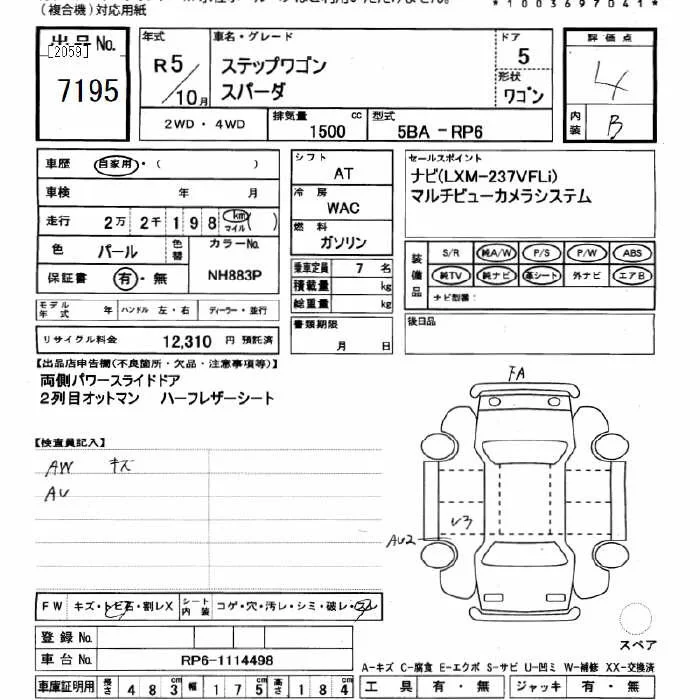 (複合機)対応用紙
*1003697041*
出品No.
[2059]
7195
年式
R5/10月
車名・グレード
ステップワゴン
スパーダ
ドア
5
形状
ワゴン
評価点
4
内装
B
2WD・4WD
排気量
1500 cc
型式
5BA-RP6
車歴 自家用・( )
車検 年 月
走行 2万2千198 km マイル ( )
色 パール 色替 カラーNo.
NH883P
保証書 有・無
モデル年式 年 ハンドル 左・右 ディーラー・並行
リサイクル料金 12,310 円 預託済
シフト
AT
冷房
WAC
燃料
ガソリン
乗車定員 7 名
積載量 kg
総重量 kg
書類期限
月 日
セールスポイント
ナビ(LXM-237VFLi)
マルチビューカメラシステム
装備品
S/R 純A/W P/S P/W ABS
純TV 純ナビ 革シート 外ナビ エアB
ナビ型番:
後日品
【出品店申告欄(不良箇所・欠品・注意事項等)】
両側パワースライドドア
2列目オットマン ハーフレザーシート
【検査員記入】
AW キズ
AU
FA
U3
AU2
FW キズ・トビ石・割レX シート内装 コゲ・穴・汚レ・シミ・破レ・スレ
登録No.
車台No. RP6-1114498
スペア
A-キズ C-腐食 E-エクボ S-サビ U-凹ミ W-補修 XX-交換済
車庫証明用 長さ 483cm 幅 175cm 高さ 184cm 工具 有・無 ジャッキ 有・無